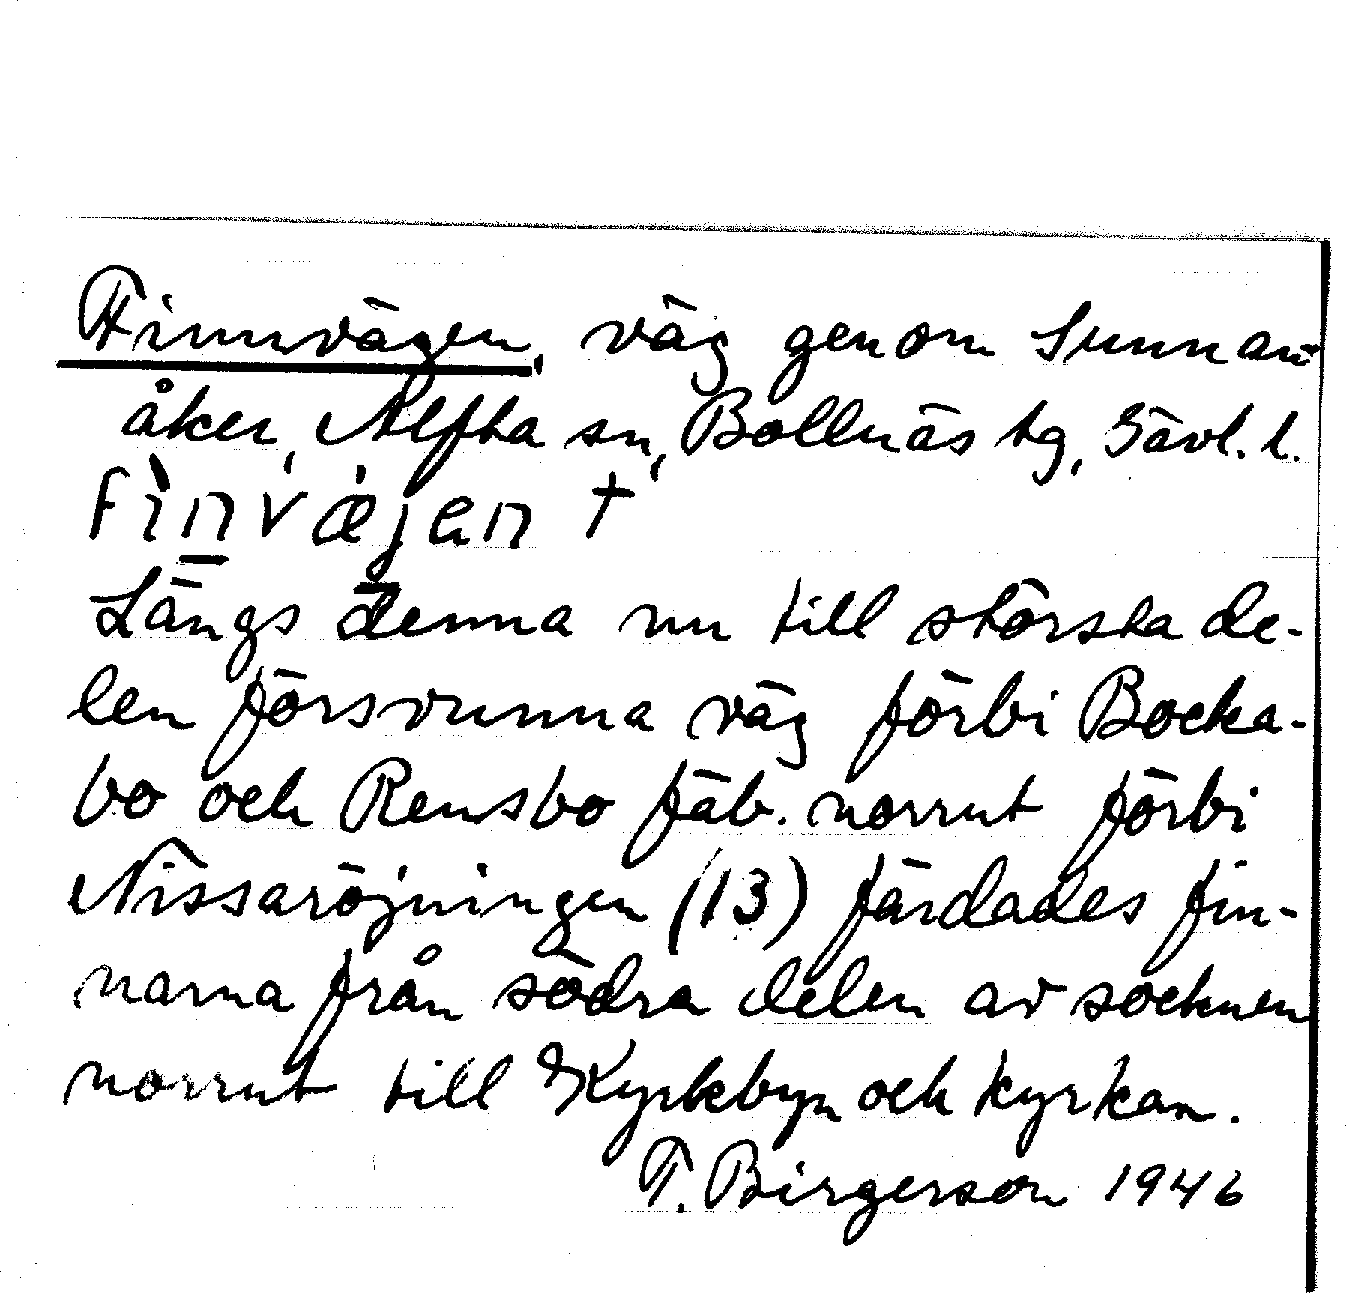 Finnvägen, väg genom Sunnan-
åker, Alfta sn, Bollnäs tg, Gävl. l.
finvæjen †
Längs denna nu till största de-
len försvunna väg förbi Bocka-
bo och Rensbo fäb. norrut förbi
Nissaröjningen (13) färdades fin-
narna från södra delen av socknen
norrut till Kyrkbyn och kyrkan.
T. Birgerson 1946